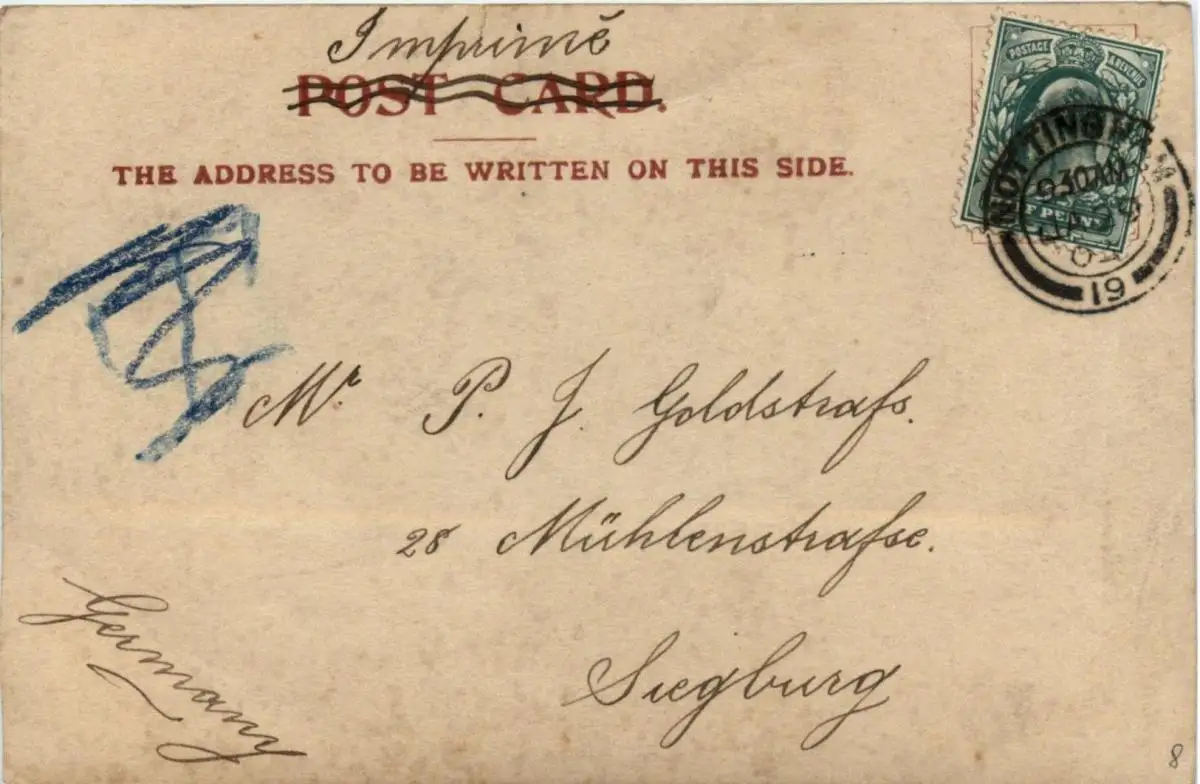 Imprimé
POST CARD.
THE ADDRESS TO BE WRITTEN ON THIS SIDE.
POSTAGE & REVENUE
NOTTINGHAM
9 30 AM
JA
04
19
Mr. P. J. Goldstraſs.
28 Mühlenstraſse.
Siegburg
Germany
8